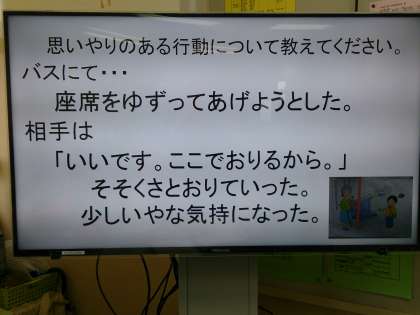 思いやりのある行動について教えてください。
バスにて・・・
座席をゆずってあげようとした。
相手は
「いいです。ここでおりるから。」
そそくさとおりていった。
少しいやな気持になった。